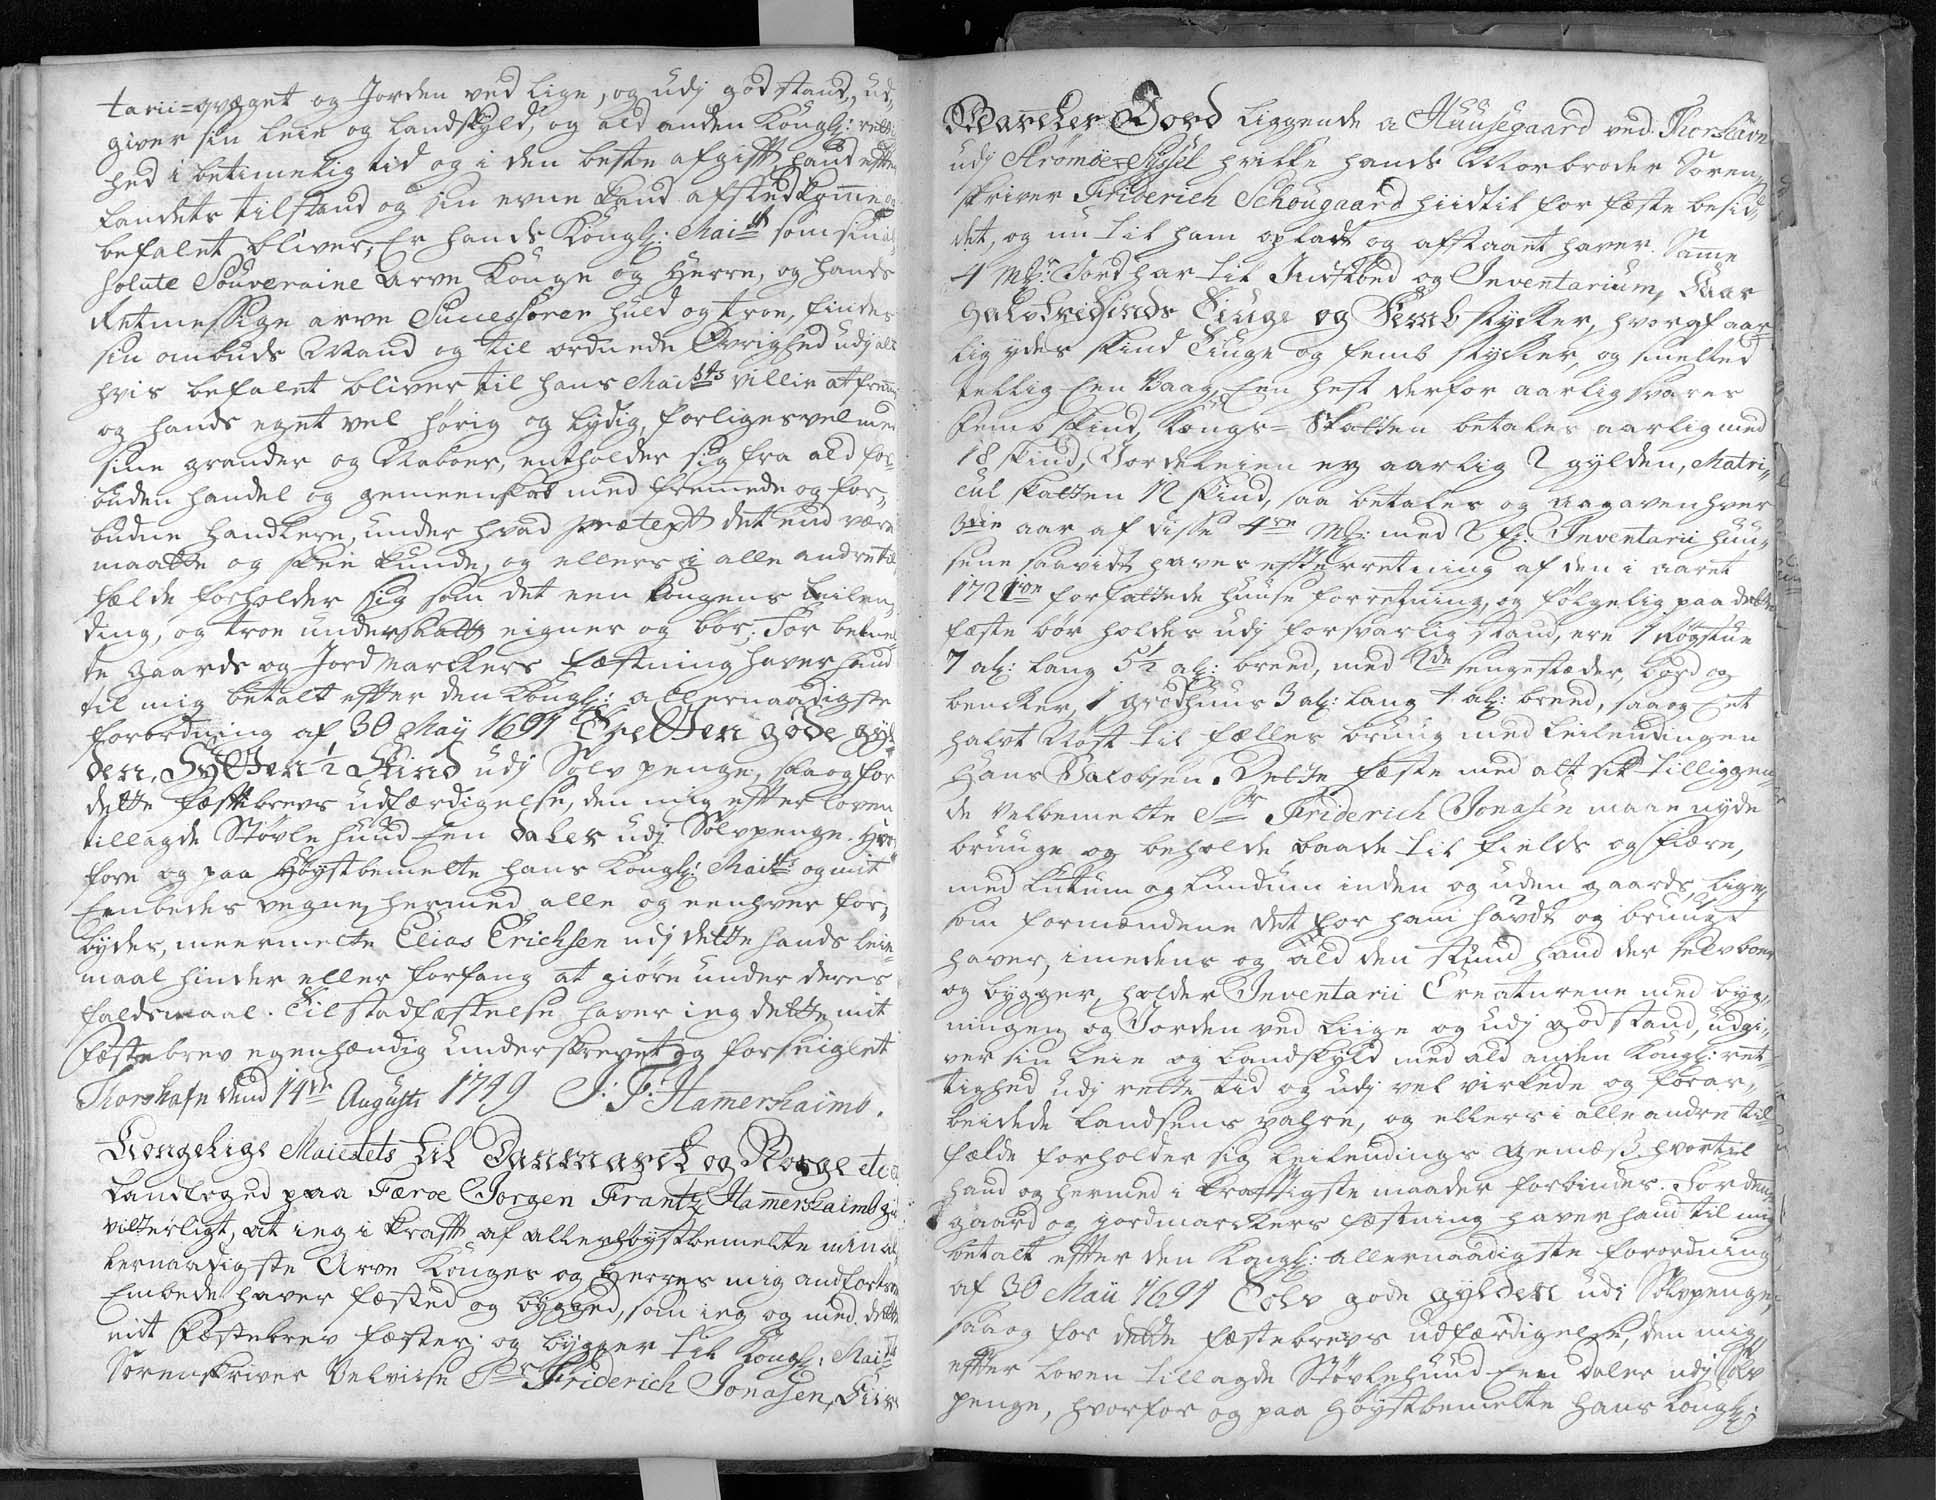 tarii=qvæget og Jorden ved lige, og udj god stand, ud,,
giver sin leie og landskyld, og ald anden Kongl: retti
hed i betimelig tid og i den beste afgift hand efter
Landets tilstand og sin evne kand afsted komme og
befalet bliver, Er hands Kongl: Maitt som sin ab
solute Souveraine arve Konge og Herre, og hands
Retmessige arve Successorer huld og troe, findes
sin ombuds Mand og til ordnede Øvrighed udj alt
hvis befalet bliver til hans Maitts villie at fremme
og hands eget vel hørig og lydig, forliges vel med
sine grander og Naboer, entholder sig fra ald for,,
buden handel og gemeenskab med fremmede og for,,
budne handlere, under hvad prætext det end være
maatte og skee kunde, og ellers i alle andre til
fælde forholder sig som det een Kongens Leilen
ding, og troe undersaatt eigner og bør; For bemel
te gaards og Jord Marckers Fæstning haver hand
til mig betalt efter den Kongl: allernaadigste
forordning af 30 Maij 1691 Tretten gode gyl
den, Sytten 1/2 Skind udj Sølv penge, saa og for
dette fæstebrevs udfærdigelse, den mig efter loven
tillagde Støvle hund Een Daler udj Sølvpenge. Hvor
fore og paa Høystbemelte hans Kongl: Maitts og mit
Embedes vegne hermed alle og eenhver for,,
bydes, meermelte Elias Erichsen udj dette hands leie
maal hinder eller forfang at giøre under deres
faldsmaal. Til stadfæstelse haver ieg dette mit
Fæstebrev egenhændig underskrevet og forseiglet
Thorshafn dend 14de Augusti 1749 J: F: Hamershaimb.
Kongelige Maiestets til Danmarck og Norge etc:
Landfoged paa Færøe Jørgen Frantz Hamershaimb giør
vitterligt, at ieg i kraft af allerhøystbemelte min al,,
lernaadigste Arve Konges og Herres mig anfortroede
Embede haver fæsted og bygged, som ieg og med dette
mit Fæstebrev fæster og bygger til Kongl: Maitts
Sorenskriver Velviise Sr Friderich Jonasen, Fiire
Marcker Jord liggende a Huusegaard ved Thorshavn
udj Strømøe=Syssel hvilke hands Morbroder Soren,,
skriver Friderich Schougaard hidtil for fæste besid,,
det, og nu til ham opladt og afstaaet haver. Samme
4 Mk: Jord har til Indstand og Inventarium,
og Femb stycker, hvoraf aar
lig ydes skind Tiuge og femb stycker, og smelted
tellig Een Vaag, Een hest derfor aarlig svares
Femb skind, Kongs=Skatten betales aarlig med
18 skind, Jordeleien er aarlig 2 gylden, Matri,,
cul skatten 12 skind, saa betales og aagaven hver
3die aar af disse 4re Mk: med 2 f: Inventarii huu,,
sene saavidt haves efterretning af den i aaret
1721 forfattede huuse forretning, og følgelig paa dette
fæste bør holdes udj forsvarlig stand, ere 1 Røgstue
7 al: lang 5 1/2 al: breed, med 2de sengestæder, bord og
bencker, 1 grødhuus 3 al: lang 4 al: breed, saa og Et
halvt Nøst til fælles bruug med Leilendingen
Hans Jacobsen. Dette fæste med alt sit tilliggen
de Velbemelte Sr Friderich Jonasen maae nyde
bruuge og beholde baade til Fields og Fiære,
med Lutum og Lundum inden og uden gaards, lige,,
som formændene det for ham havdt og bruugt
haver, imedens og ald den stund hand der selv boer
og bygger, holder Inventarii Creaturene med byg,,
ningen og Jorden ved Liige og udj god stand, udgi,,
ver sin leie og landskyld med ald anden Kongl: ret
tighed udj rette tid og udj vel virkede og forar,,
beidede Landsens vahre, og ellers i alle andre til
fælde forholder sig leilendings gemæss, hvortil
hand og hermed i kraftigste maader forbindes. For denne
gaard og jordmarckers fæstning haver hand til mig
betalt efter den Kongl: allernaadigste forordning
af 30 Maii 1691 Tolv gode gylden udi Sølvpenge,
saa og for dette fæstebrevs udfærdigelse, den mig
efter Loven tillagde Støvlehund Een Daler udj Sølv
penge, hvorfor og paa Høystbemelte hans Kongl: